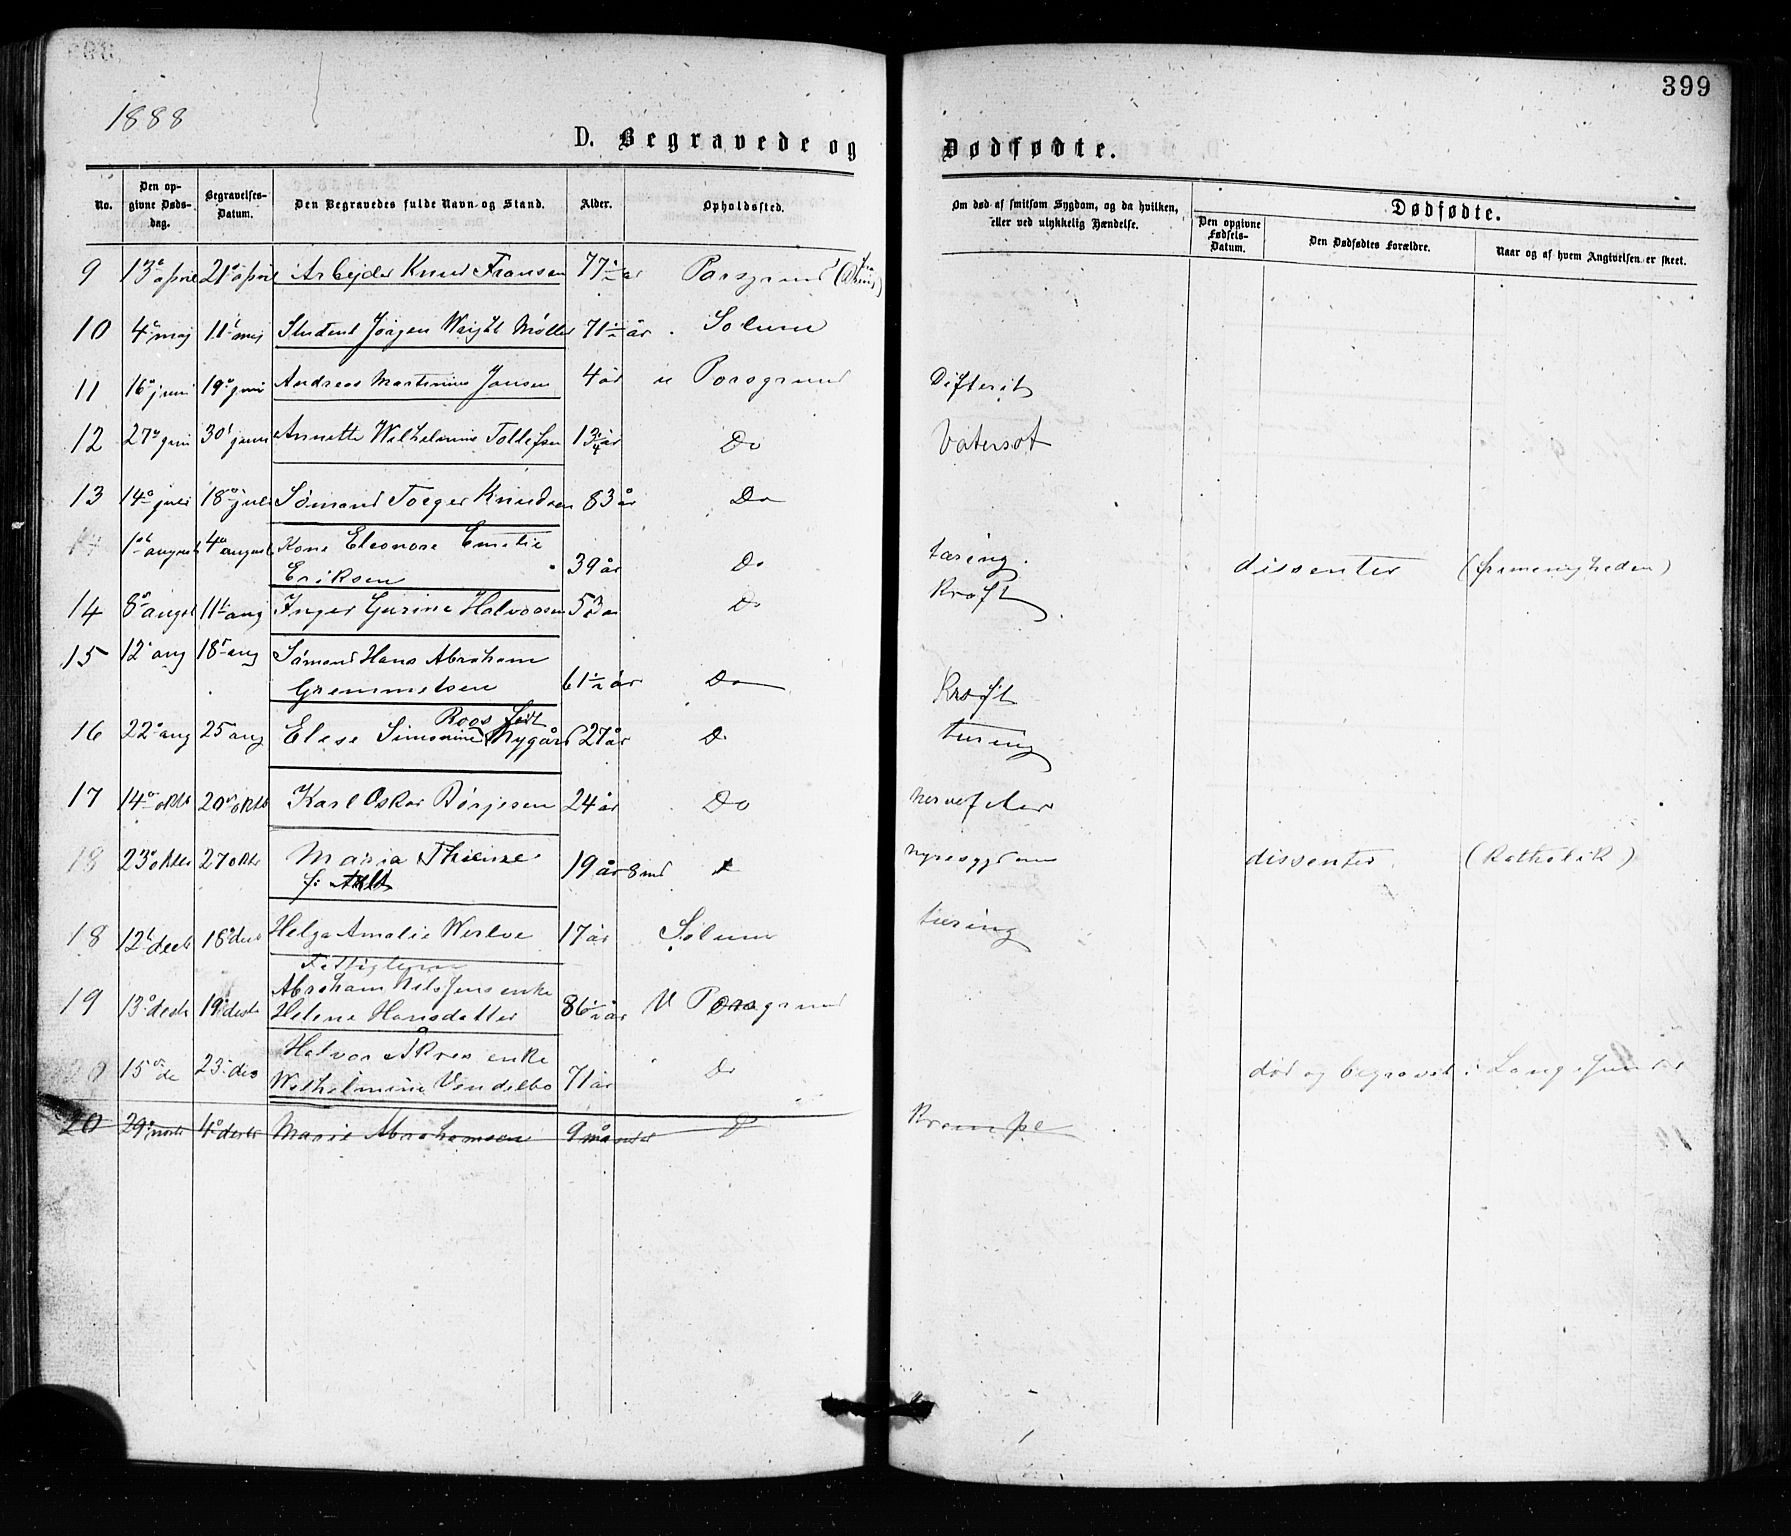 399
1888
D. Begravede og Dødfødte.
No.
Den opgivne Dødsdag.
Begravelses-Datum.
Den Begravedes fulde Navn og Stand.
Alder.
Opholdssted.
Om død af smitsom Sygdom, og da hvilken, eller ved ulykkelig Hændelse.
Dødfødte.
Den opgivne Fødsels-Datum.
Den Dødfødtes Forældre.
Naar og af hvem Angivelsen er skeet.
9 13 april 21 april Arbejder Knud Fransen 77 1/2 år Porsgrund
10 4 maj 11 maj Student Jørgen Wright Møller 71 1/2 år Solum
11 16 juni 19 juni Andreas Martinius Jansen 4 år Porsgrund Difterit
12 27 juni 30 juni Annette Wilhelmine Tollefsen 13 1/4 år Do Vatersot
13 14 juli 18 juli Sømand Torger Knudsen 83 år Do
1 august 4 august Kone Eleonore Emelie
Eriksen 39 år Do tæring. dissenter (frimenigheden)
14 8 august 11 aug Inger Gurine Halvorsen Do Kræft
15 12 aug 18 aug Sømand Hans Abraham
Gremmetsen 61 1/2 år Do Kræft
16 22 aug 25 aug Elise Simonine Roos født Nygård 27 år Do tæring
17 14 oktb 20 oktb Karl Oskar Børjesen 24 år Do nervefeber
18 23 oktbr 27 oktbr Maria Thieme
f: 19 år 8 md nyresygdom dissenter (Katholik)
18 12 decb 16 decb Helga Amalie Werlve 17 år Solum tæring
Fattiglem
19 13 decb 19 decb Abraham Nils Jens enke
Helene Hansdatter 86 1/2 år V Porsgrund
20 15 de 23 des Halvor Åkres enke
Wilhelmine Vendelbo 71 år Do død og begravet i Langesund
20 29 4 decbr Marie Abrahamsen 9 måneder Do Krampe